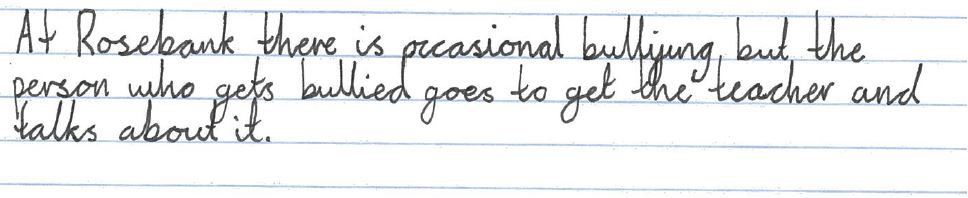 At Rosebank there is occasional bullying, but the
person who gets bullied goes to get the teacher and
talks about it.